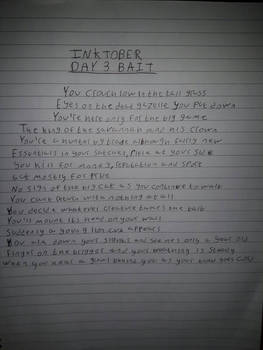 INKTOBER
DAY 3 BAIT
You crouch low in the tall grass
Eyes on the dead gazelle you put down
You're here only for the big game
The king of the savannah and his crown
You're a hunter by trade although fairly new
Essentials in your satchel, at your side
You kill for money, reputation and sport
but mostly for pride
No sign of the big cat as you continue to wait
You can't return with nothing at all
You decide whatever creature takes the bait
You'll mount its head on your wall
Suddenly a young lion cub appears
You aim down your sights and see he's only a year old
Finger on the trigger and your breathing is steady
When you hear a growl behind you as your blood goes cold